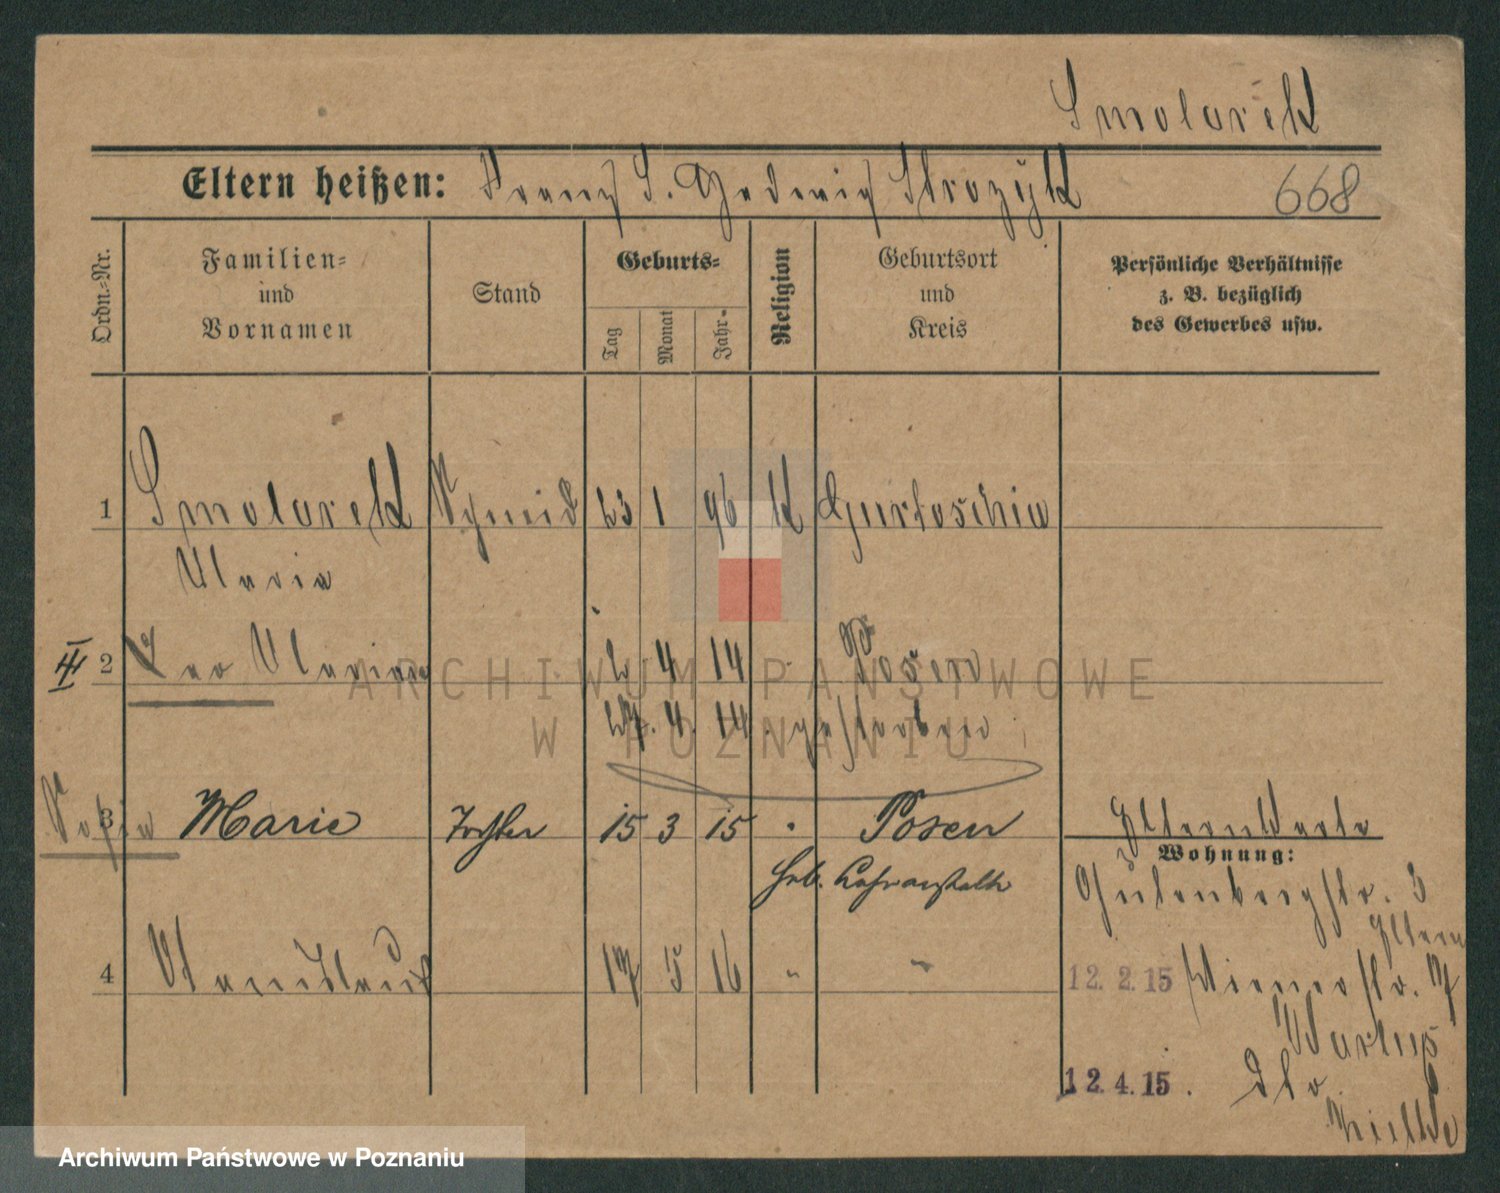 Smolarek
Eltern heißen: Franz S. Hedwig Strozyk
668
Ordn.-Nr.
Familien-
und
Vornamen
Stand
Geburts-
Tag
Monat
Jahr-
Religion
Geburtsort
und
Kreis
Persönliche Verhältnisse
z. B. bezüglich
des Gewerbes usw.
1 Smolarek 23 1 96 K Gurtoschin
Maria
2 Leo Marian 2 4 14 Posen
27. 4. 14 gestorben
3 Marie Tochter 15 3 15 " Posen
Heb. Lehranstalt
Wohnung:
Gutenbergstr. 3
Eltern
4 17 5 16 " "
12. 2. 15
12. 4. 15.
ARCHIWUM PAŃSTWOWE
W POZNANIU
Archiwum Państwowe w Poznaniu